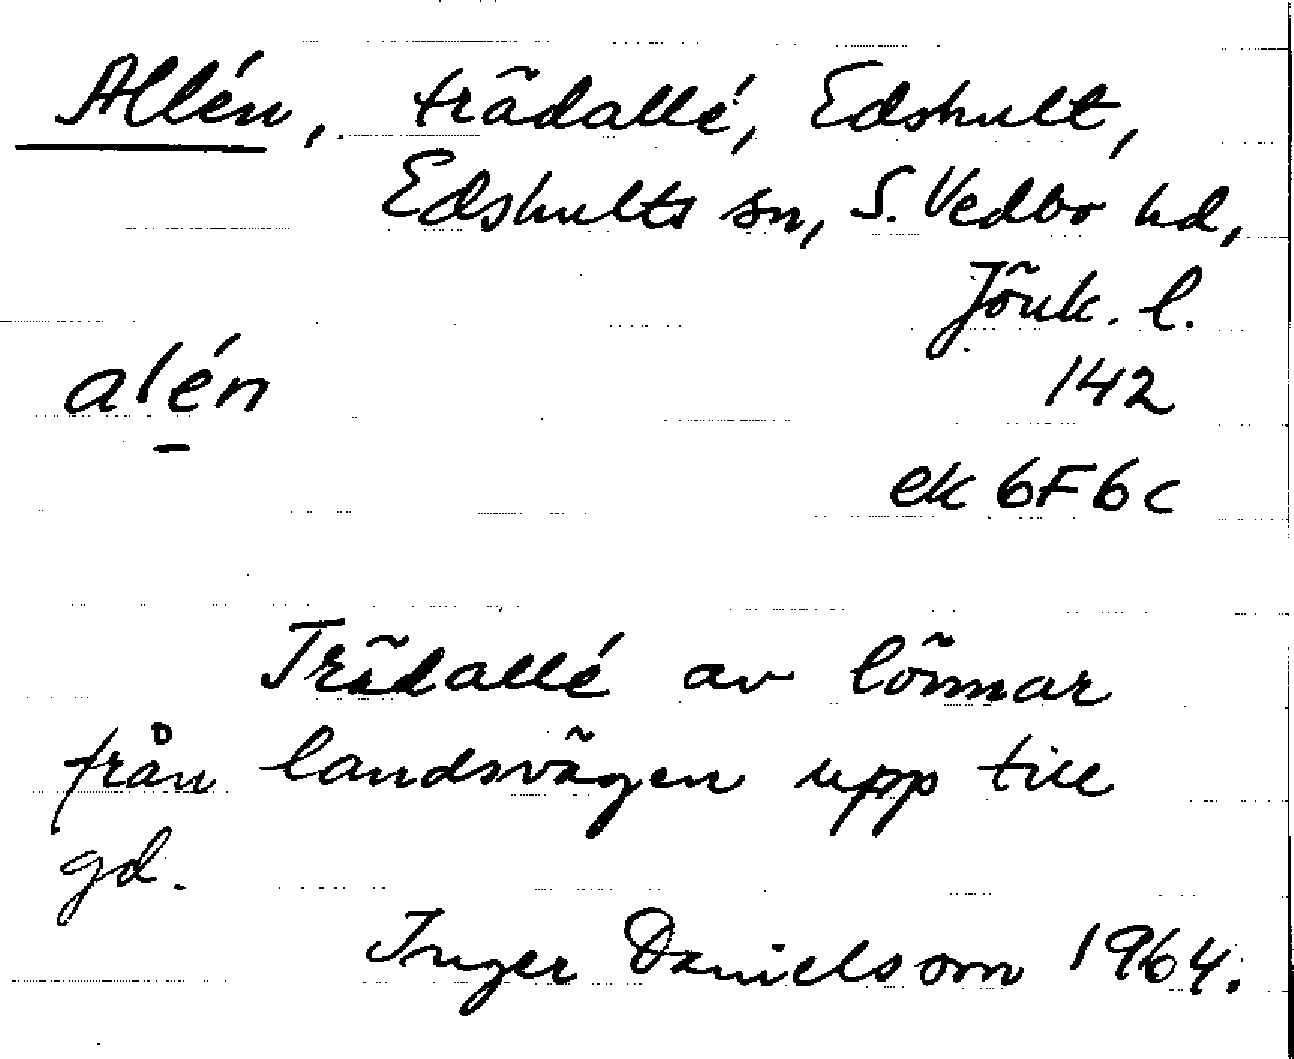 Allén, trädallé, Edshult,
Edshults sn, S. Vedbo hd,
Jönk. l.
alén
142
ek 6F6c
Trädallé av lönnar
från landsvägen upp till
gd.
Inger Danielsson 1964.